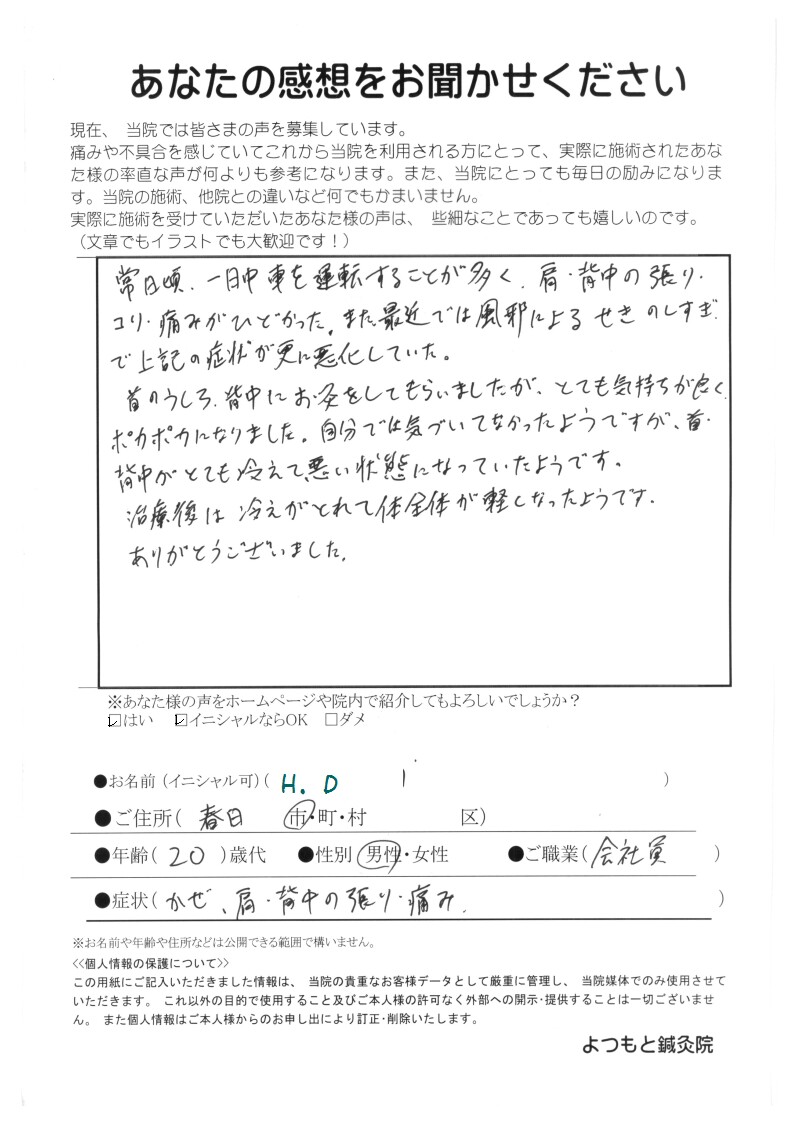 あなたの感想をお聞かせください
現在、 当院では皆さまの声を募集しています。
痛みや不具合を感じていてこれから当院を利用される方にとって、実際に施術されたあな
た様の率直な声が何よりも参考になります。また、当院にとっても毎日の励みになりま
す。当院の施術、他院との違いなど何でもかまいません。
実際に施術を受けていただいたあなた様の声は、 些細なことであっても嬉しいのです。
（文章でもイラストでも大歓迎です！）
常日頃、一日中車を運転することが多く、肩・背中の張り・
コリ・痛みがひどかった。また最近では風邪によるせきのしすぎ
で上記の症状が更に悪化していた。
首のうしろ、背中にお灸をしてもらいましたが、とても気持ちが良く
ポカポカになりました。自分では気づいてなかったようですが、首・
背中がとても冷えて悪い状態になっていたようです。
治療後は冷えがとれて体全体が軽くなったようです。
ありがとうございました。
※あなた様の声をホームページや院内で紹介してもよろしいでしょうか？
☑はい ☑イニシャルならOK □ダメ
●お名前（イニシャル可）（ H. D ）
●ご住所（ 春日 市・町・村 区）
●年齢（ 20 ）歳代 ●性別 男性・女性 ●ご職業（ 会社員 ）
●症状（ かぜ、肩・背中の張り・痛み. ）
※お名前や年齢や住所などは公開できる範囲で構いません。
<<個人情報の保護について>>
この用紙にご記入いただきました情報は、 当院の貴重なお客様データとして厳重に管理し、 当院媒体でのみ使用させて
いただきます。 これ以外の目的で使用すること及びご本人様の許可なく外部への開示・提供することは一切ございませ
ん。 また個人情報はご本人様からのお申し出により訂正・削除いたします。
よつもと鍼灸院